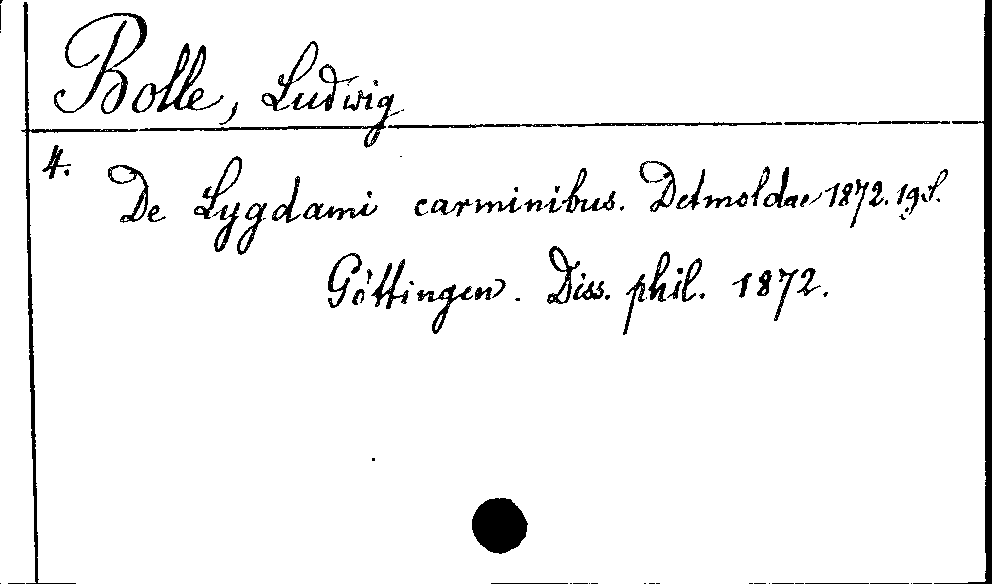 Bolle, Ludwig
4.
De Lygdami carminibus. Detmoldae 1872. 19 S.
Göttingen. Diss. phil. 1872.